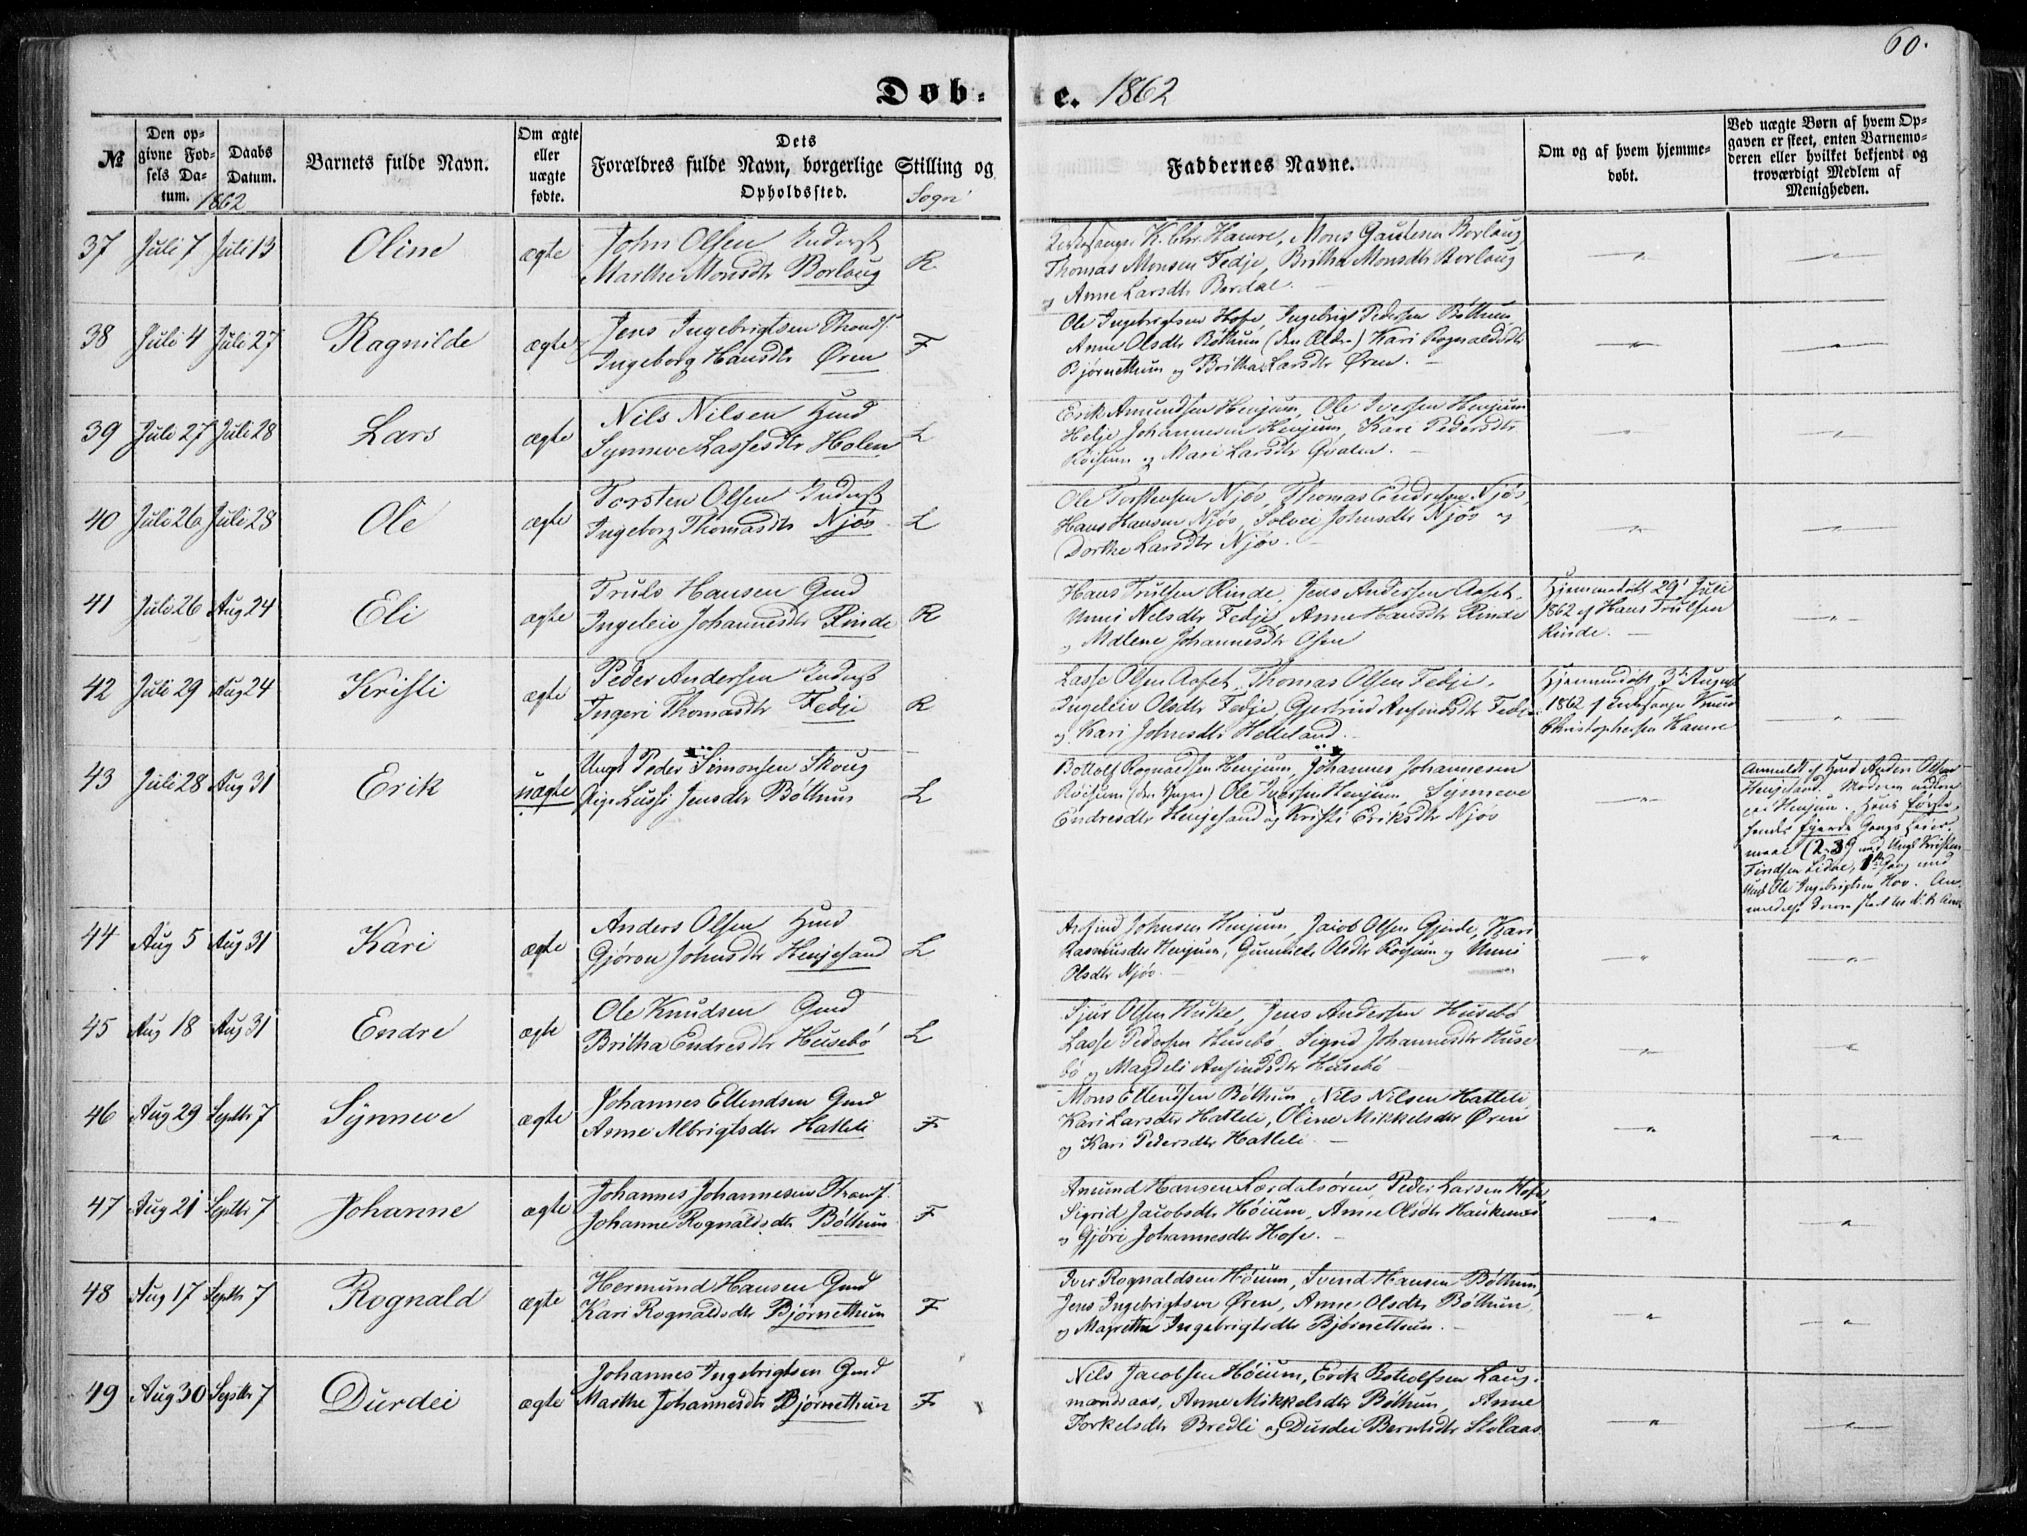 60.
Døb-
e. 1862
№
Den opgivne Fødsels Datum.
Daabs Datum.
1862
Barnets fulde Navn.
Om ægte eller uægte fødte.
Dets Forældres fulde Navn, borgerlige Stilling og Opholdssted.
Sogn
Faddernes Navne.
Om og af hvem hjemmedøbt.
Ved uægte Børn af hvem Opgaven er skeet, enten Barnemoderen eller hvilket bekjendt og troværdigt Medlem af Menigheden.
37 Juli 7 Juli 13 Oline ægte John Olsen Inderst
Marthe Monsdtr Borlaug R
Kirkesanger K. Chr. Hamre, Mons Gautesen Borlaug,
Thomas Monsen Fedje, Britha Monsdtr Borlaug
og Anne Larsdtr Berdal.
38 Juli 4 Juli 27 Ragnilde ægte Jens Ingebrigtsen
Ingeborg Hansdtr Øren F
Ole Ingebrigtsen Hofe, Ingebrigt Pedersen Bøthun
Anne Olsdtr Bøthun (den Ældre) Kari Rognaldsdtr
Bjørnethun og Britha Larsdtr Øren.
39 Juli 27 Juli 28 Lars ægte Nils Nilsen Hmd
Synneve Lassesdtr Holen L
Erik Amundsen Henjum, Ole Iversen Henjum
Helje Johannesen Henjum, Kari Pedersdtr
Røisum og Mari Larsdtr Qvalen.
40 Juli 26 Juli 28 Ole ægte Torsten Olsen Inderst
Ingeborg Thomasdtr Njøs L
Ole Torstensen Njøs, Thomas Endresen Njøs,
Hans Hansen Njøs, Solvei Johnsdtr Njøs og
Dorthe Larsdtr Njøs.
41 Juli 26 Aug 24 Eli ægte Truls Hansen Gmd
Ingeleiv Johannesdtr Rinde R
Hans Trulsen Rinde, Jens Andersen Aaset,
Unni Nilsdtr Fedje, Anne Hansdtr Rinde
og Malene Johannesdtr Osen
Hjemmedøbt 29' Juli
1862 af Hans Trulsen
Rinde.
42 Juli 29 Aug 24 Kristi ægte Peder Andersen Inderst
Ingeri Thomasdtr Fedje R
Lasse Olsen Aaset, Thomas Olsen Fedje,
Ingeleiv Olsdtr Fedje, Gjertrud Ansindsdtr Fedje
og Kari Johnsdtr Helleland.
Hjemmedøbt 3die August
1862 af Kirkesanger Knud
Christophersen Hamre
43 Juli 28 Aug 31 Erik uægte Ungk Peder Simonsen Skoug
Pige Lussi Jensdtr Bøthun L
Bottolf Rognaldsen Henjum, Johannes Johannesen
Røisum (den Yngre) Ole Iversen Henjum, Synneve
Endresdtr Henjesand og Kristi Eriksdtr Njøs
Anmeldt af Hmd Anders Olsen
Henjesand.
44 Aug 5 Aug 31 Kari ægte Anders Olsen Hmd
Gjøron Johnsdtr Henjesand L
Arfind Johnsen Henjum, Jacob Olsen Gjerde, Kari
Rasmusdtr Henjum, Gunnilde Olsdtr Røisum og Unni
Olsdtr Njøs.
45 Aug 18 Aug 31 Endre ægte Ole Knudsen Gmd
Britha Endresdtr Husebø L
Sjur Olsen Huke, Jens Andersen Husebø
Lasse Pedersen Husebø, Sigrid Johannesdtr Huse
bø og Magdeli Ansindsdtr Husebø
46 Aug 29 Septbr 7 Synneve ægte Johannes Ellendsen Gmd
Anne Albrigtsdtr Hatleli F
Mons Ellendsen Bøthun, Nils Nilsen Hatleli,
Kari Larsdtr Hatleli, Oline Mikkelsdtr Øren
og Kari Pedersdtr Hatleli.
47 Aug 21 Septbr 7 Johanne ægte Johannes Johannesen
Johanne Rognaldsdtr Bøthun F
Amund Hansen Lærdalsøren, Peder Larsen Hofe
Sigrid Jacobsdtr Høium, Anne Olsdtr Haukenæs
og Gjøri Johannesdtr Hofe.
48 Aug 17 Septbr 7 Rognald ægte Hermund Hansen Gmd
Kari Rognaldsdtr Bjørnethun F
Iver Rognaldsen Høium, Svend Hansen Bøthun,
Jens Ingebrigtsen Øren, Anne Olsdtr Bøthun,
og Magrethe Ingebrigtsdtr Bjørnethun.
49 Aug 30 Septbr 7 Durdei ægte Johannes Ingebrigtsen Gmd
Marthe Johannesdtr Bjørnethun F
Nils Jacobsen Høium, Erik Botolfsen Laug-
mandsaas, Anne Mikkelsdtr Bøthun, Anne
Torkelsdtr Bredli og Durdei Berntsdtr Stølaas